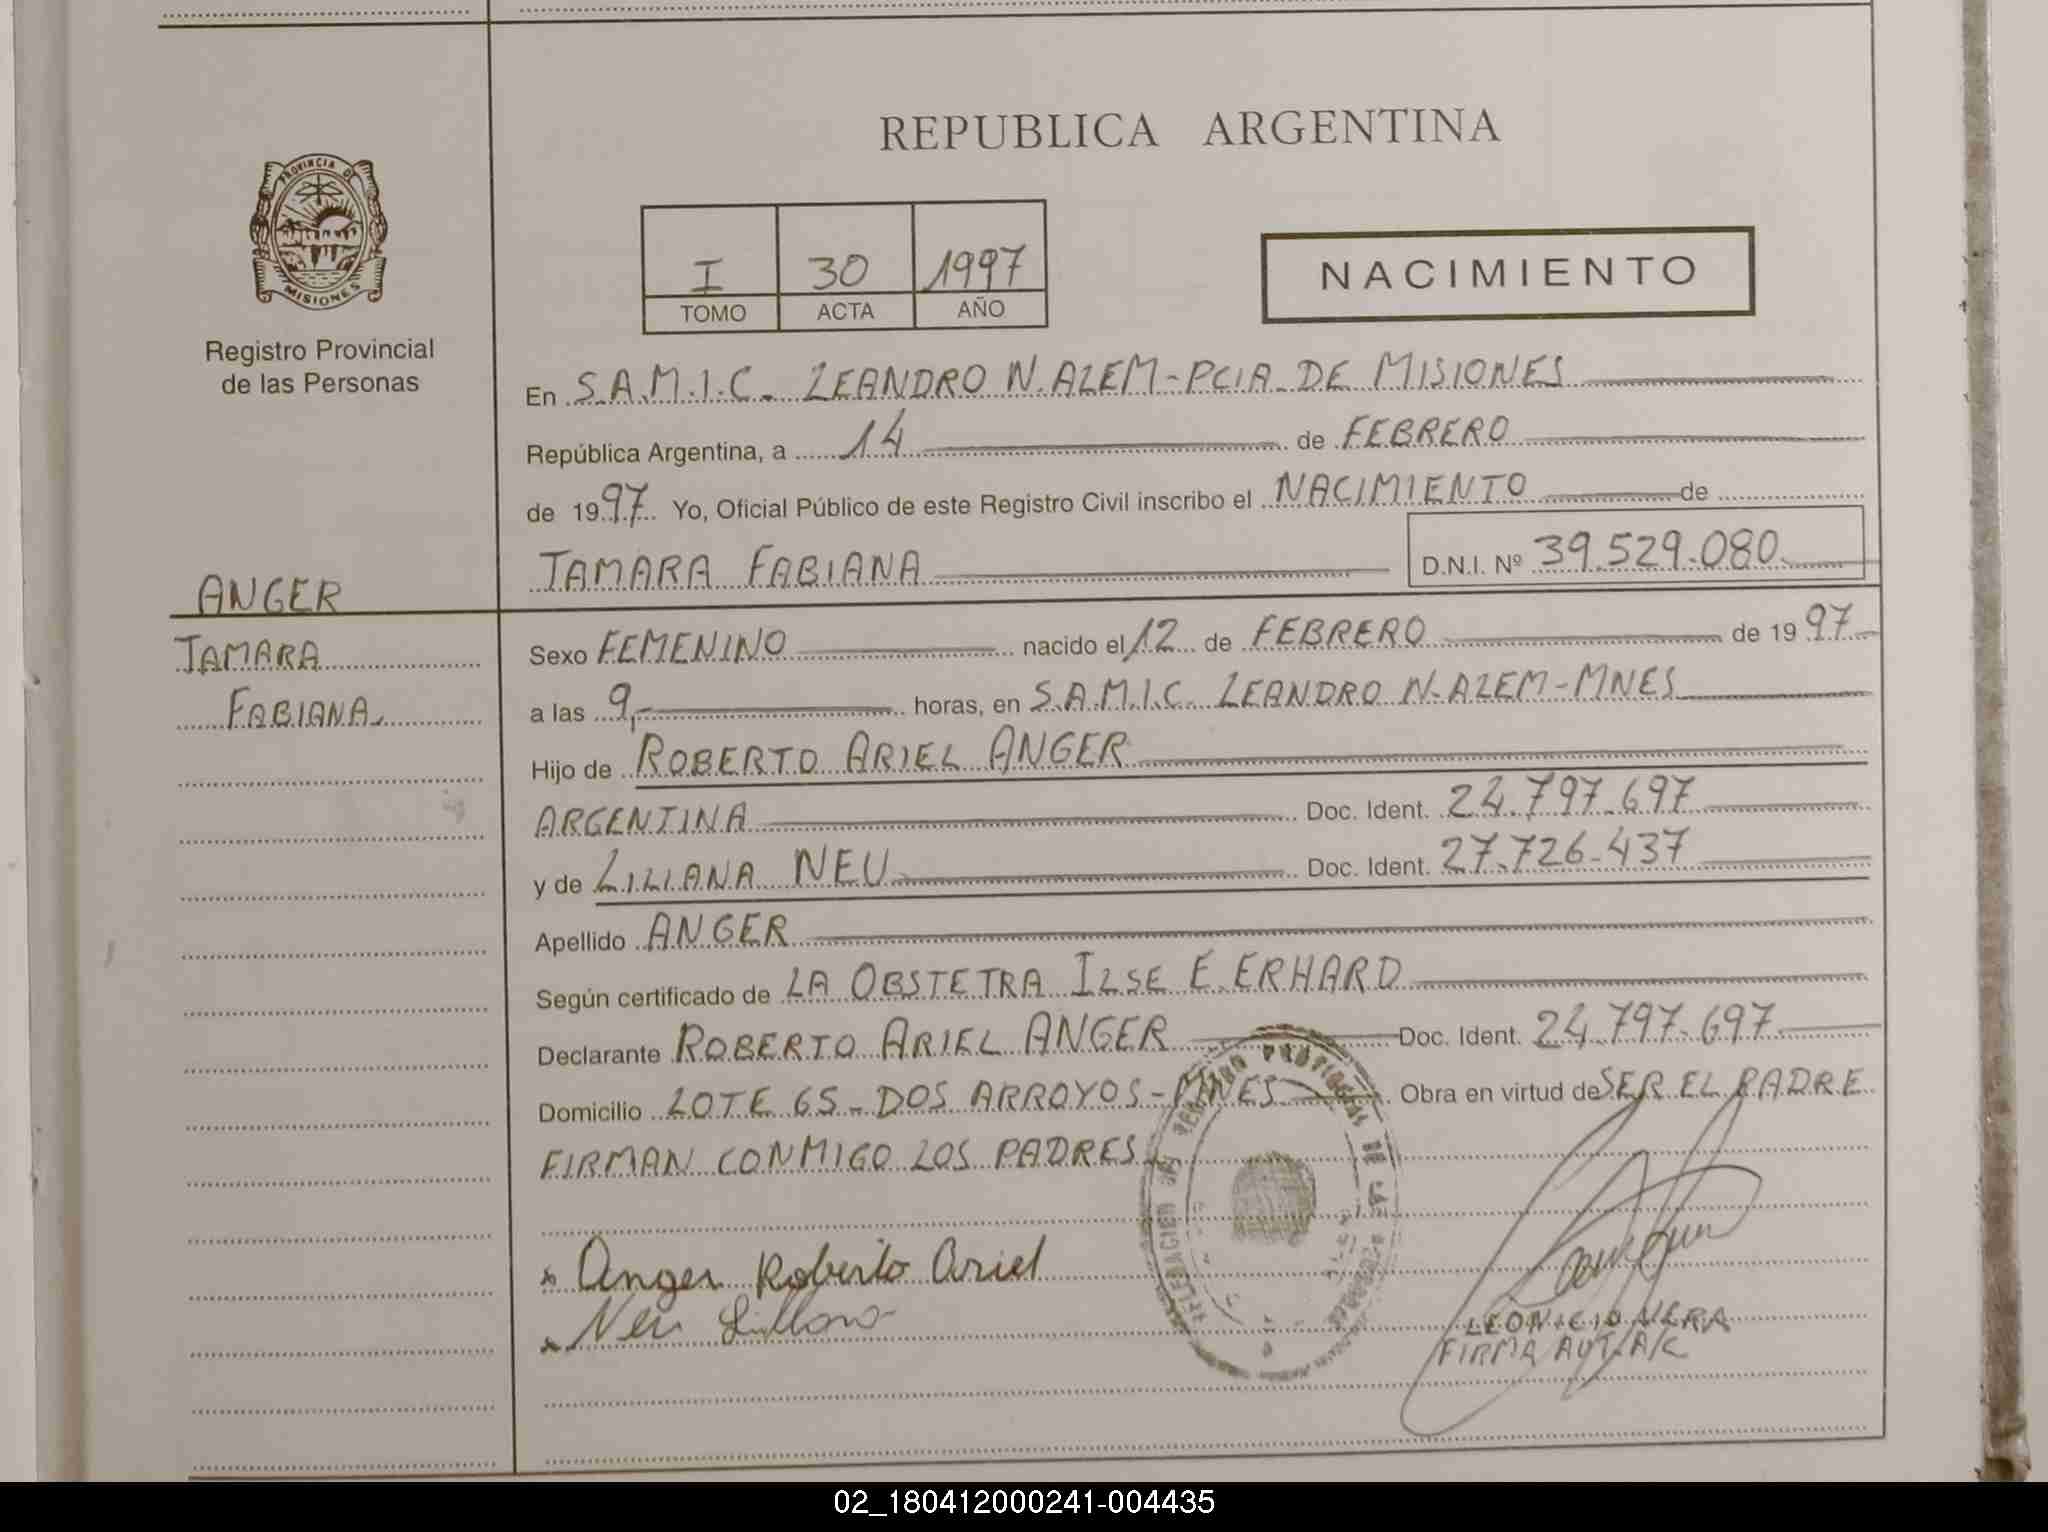 PROVINCIA DE
MISIONES
Registro Provincial
de las Personas
ANGER
TAMARA
FABIANA
REPUBLICA ARGENTINA
I 30 1997
TOMO ACTA AÑO
NACIMIENTO
En S.A.M.I.C. LEANDRO N. ALEM - PCIA. DE MISIONES
República Argentina, a 14 de FEBRERO
de 1997 Yo, Oficial Público de este Registro Civil inscribo el NACIMIENTO de
TAMARA FABIANA D.N.I. Nº 39.529.080
Sexo FEMENINO nacido el 12 de FEBRERO de 1997
a las 9,- horas, en S.A.M.I.C. LEANDRO N. ALEM - MNES
Hijo de ROBERTO ARIEL ANGER
ARGENTINA Doc. Ident. 24.797.697
y de LILIANA NEU Doc. Ident. 27.726.437
Apellido ANGER
Según certificado de LA OBSTETRA ILSE E. ERHARD
Declarante ROBERTO ARIEL ANGER Doc. Ident. 24.797.697
Domicilio LOTE 65 - DOS ARROYOS - MNES Obra en virtud de SER EL PADRE
FIRMAN CONMIGO LOS PADRES
x Anger Roberto Ariel
x Neu Liliana
LEONICIO VERA
FIRMA AUT. A/C
02_180412000241-004435